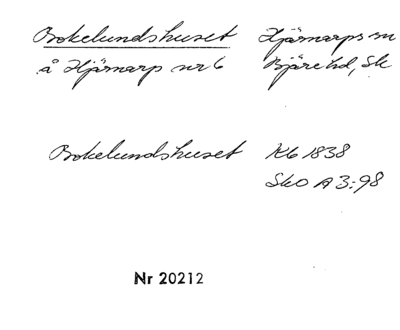 Bokelundshuset Hjärnarps sn
å Hjärnarp nr 6 Bjäre hd, Sk
Bokelundshuset Kb 1838
Sko A 3:98
Nr 20212